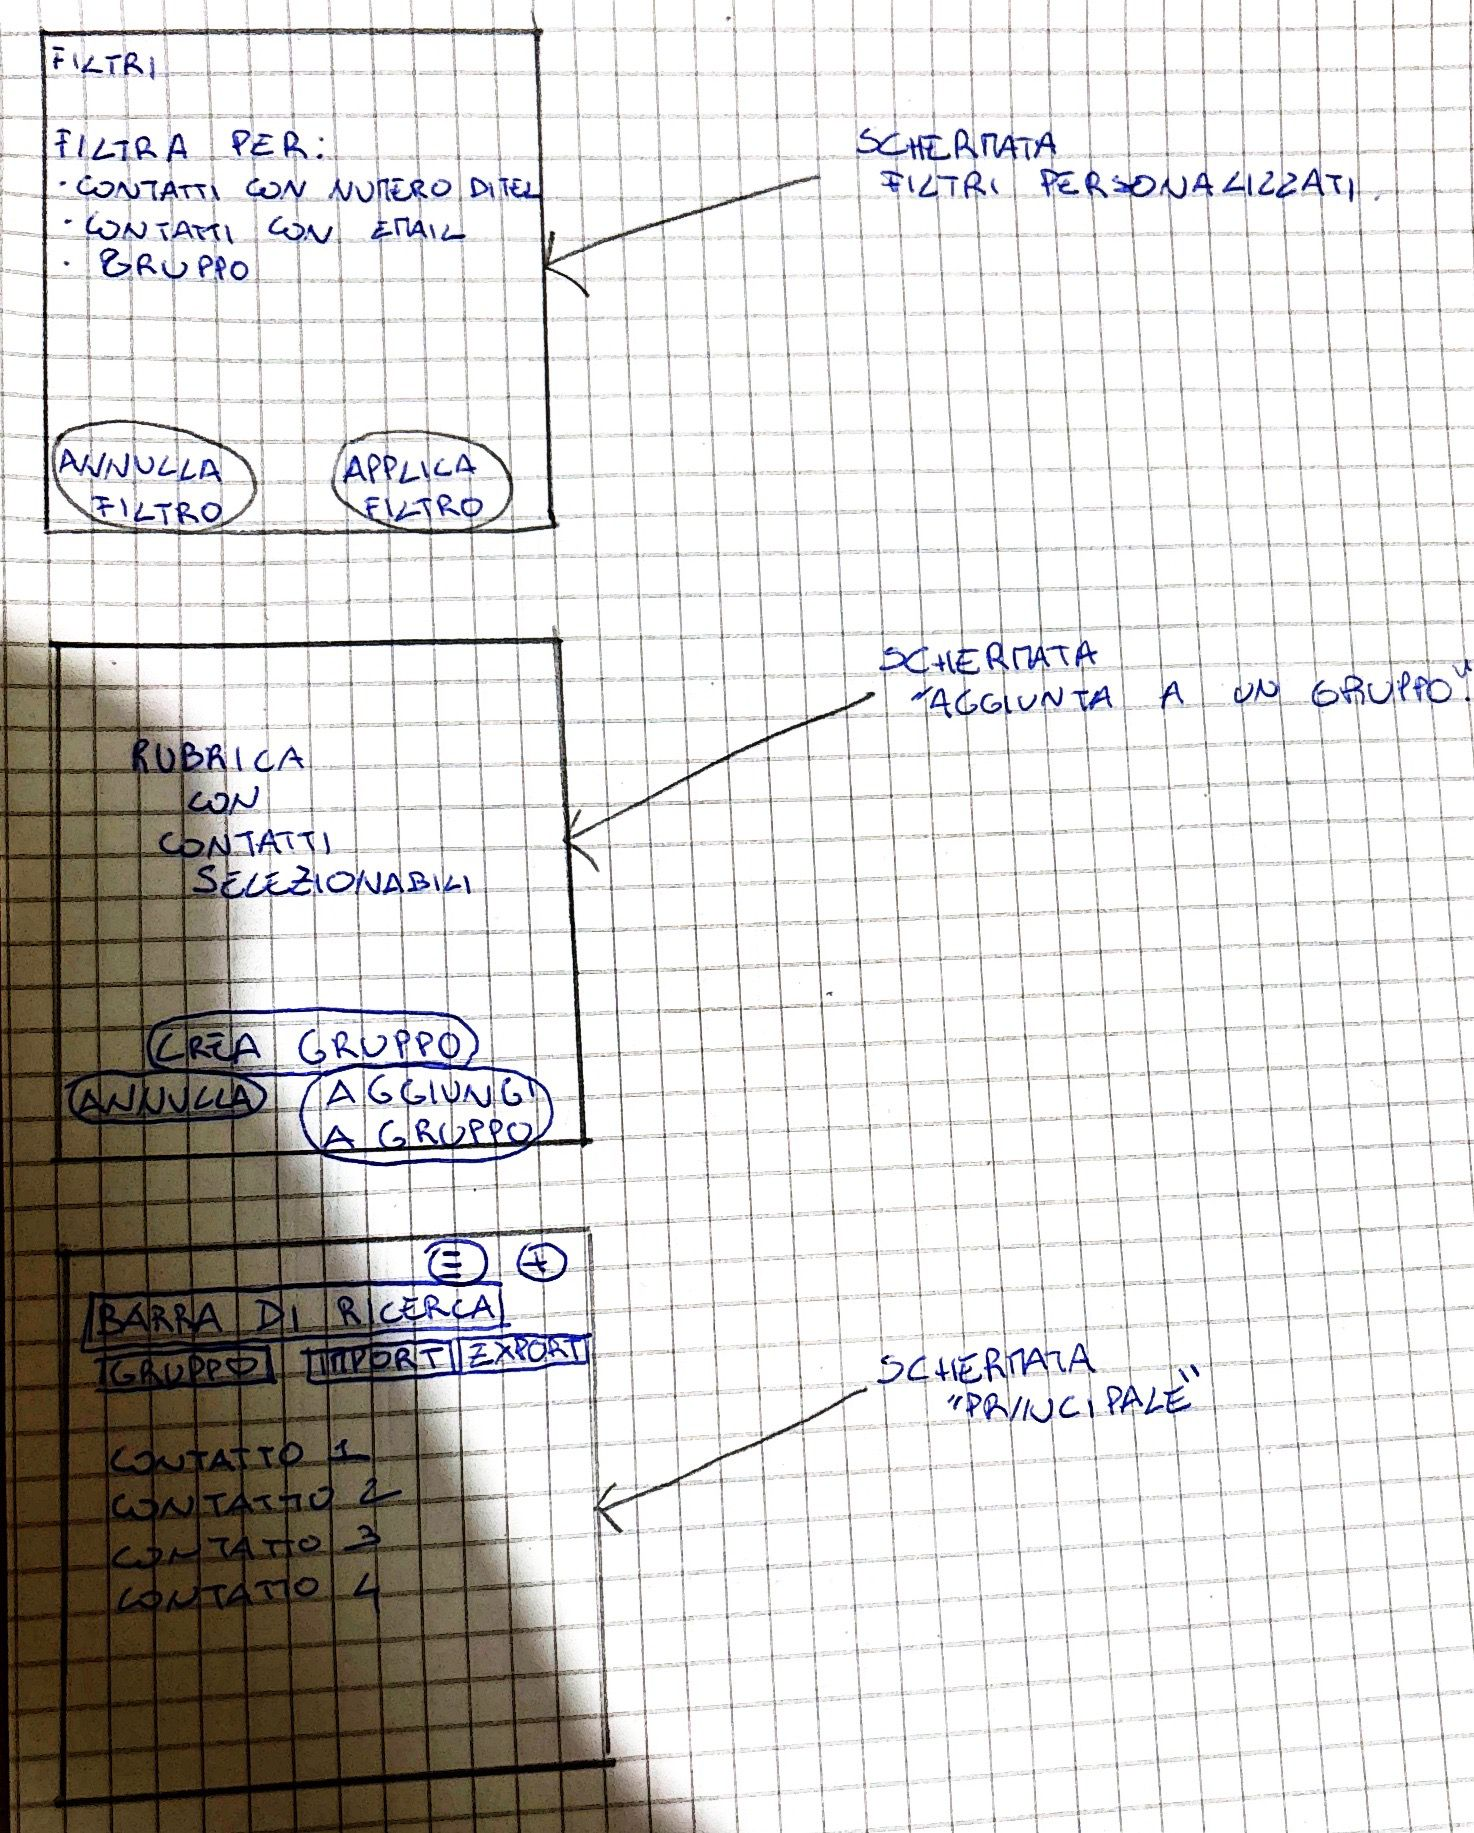 FILTRI
FILTRA PER:
· CONTATTI CON NUMERO DI TEL
· CONTATTI CON EMAIL
· GRUPPO
ANNULLA
FILTRO
APPLICA
FILTRO
SCHERMATA
FILTRI PERSONALIZZATI.
RUBRICA
CON
CONTATTI
SELEZIONABILI
CREA GRUPPO
ANNULLA
AGGIUNGI
A GRUPPO
SCHERMATA
"AGGIUNTA A UN GRUPPO".
+
BARRA DI RICERCA
GRUPPO IMPORT EXPORT
CONTATTO 1
CONTATTO 2
CONTATTO 3
CONTATTO 4
SCHERMATA
"PRINCIPALE"